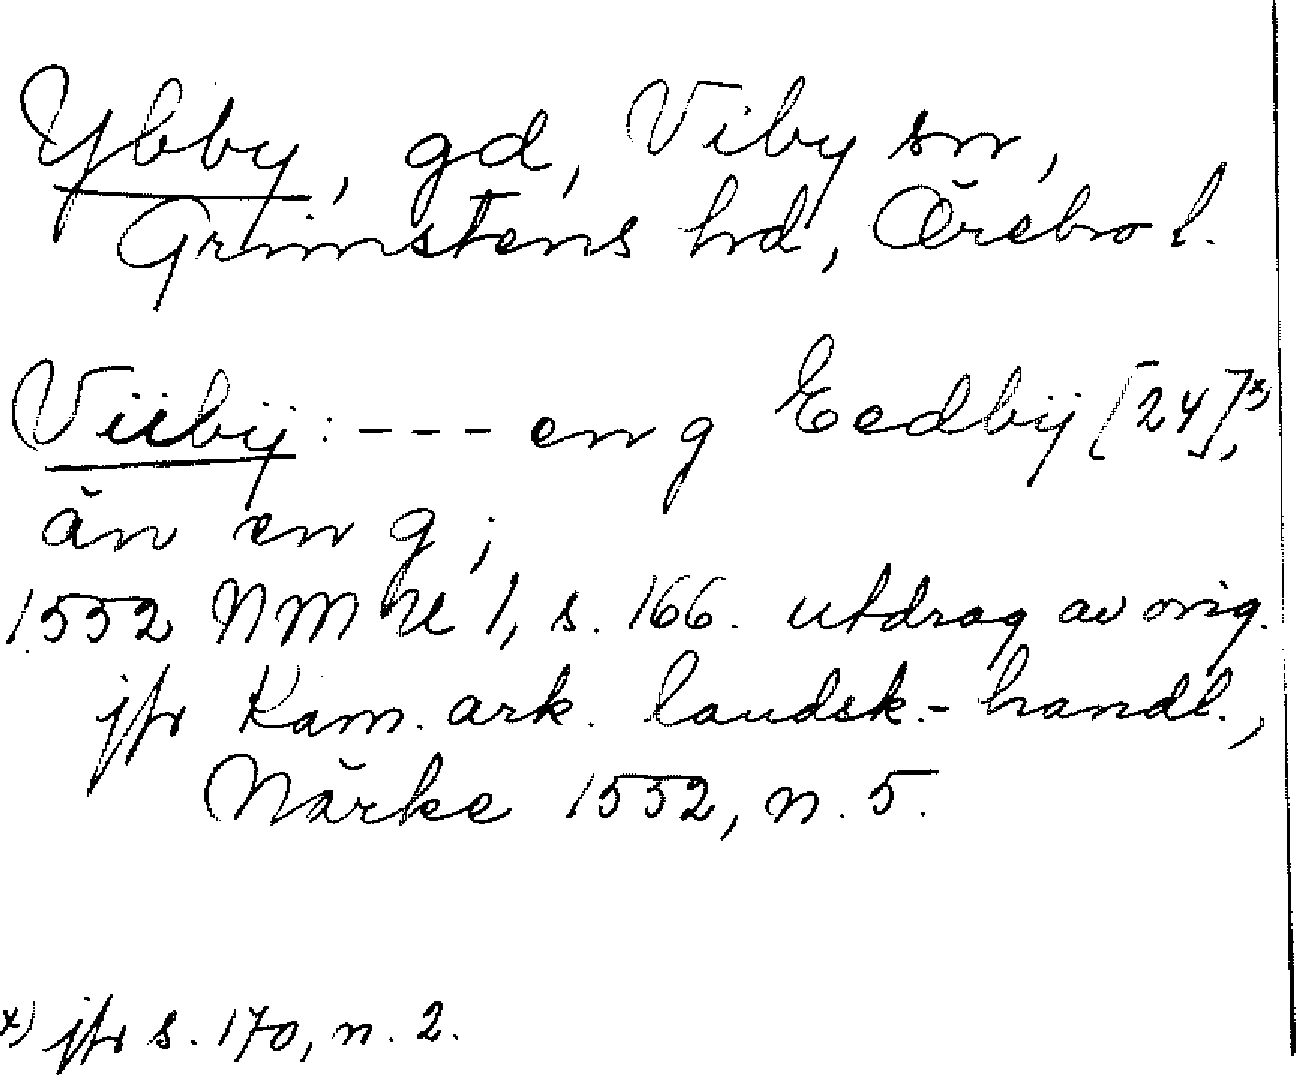 Ybby, gd, Viby sn,
Grimstens hd, Örebro l.
Viibÿ: --- en g Eedbÿ [24]x),
än en g;
1552 NMU 1, s. 166. utdrag av orig.
jfr Kam. ark. landsk.-handl.,
Närke 1552, n. 5.
x) jfr s. 170, n. 2.